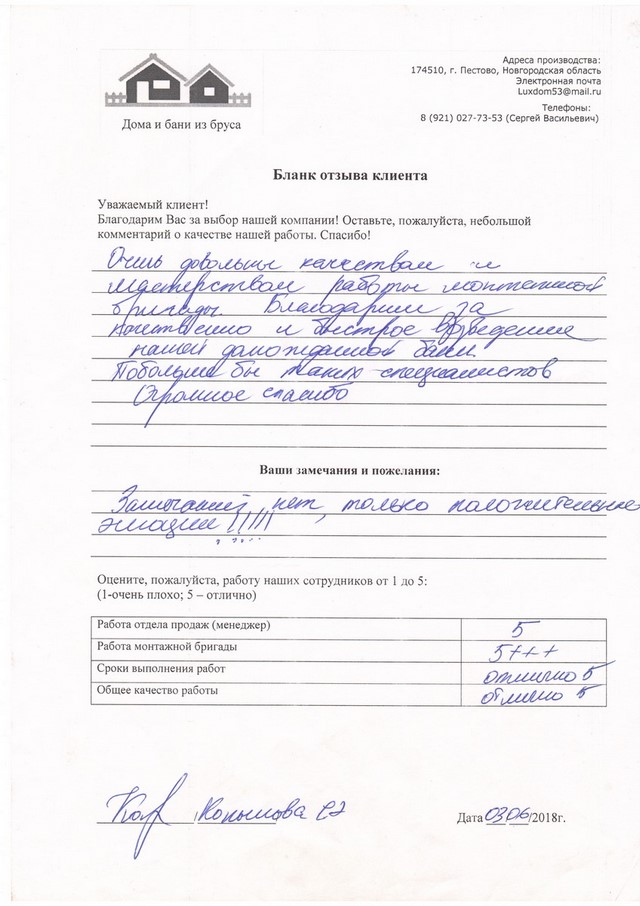 Дома и бани из бруса
Адреса производства:
174510, г. Пестово, Новгородская область
Электронная почта
Luxdom53@mail.ru
Телефоны:
8 (921) 027-73-53 (Сергей Васильевич)
Бланк отзыва клиента
Уважаемый клиент!
Благодарим Вас за выбор нашей компании! Оставьте, пожалуйста, небольшой
комментарий о качестве нашей работы. Спасибо!
Очень довольны качеством и
мастерством работы монтажной
бригады. Благодарим за
качественно и быстрое возведение
нашей долгожданной бани.
Побольше бы таких специалистов
Огромное спасибо
Ваши замечания и пожелания:
Замечаний нет, только положительные
эмоции !!!!!!
Оцените, пожалуйста, работу наших сотрудников от 1 до 5:
(1-очень плохо; 5 – отлично)
Работа отдела продаж (менеджер) 5
Работа монтажной бригады 5+++
Сроки выполнения работ отлично 5
Общее качество работы отлично 5
/
Дата 03 06/2018г.